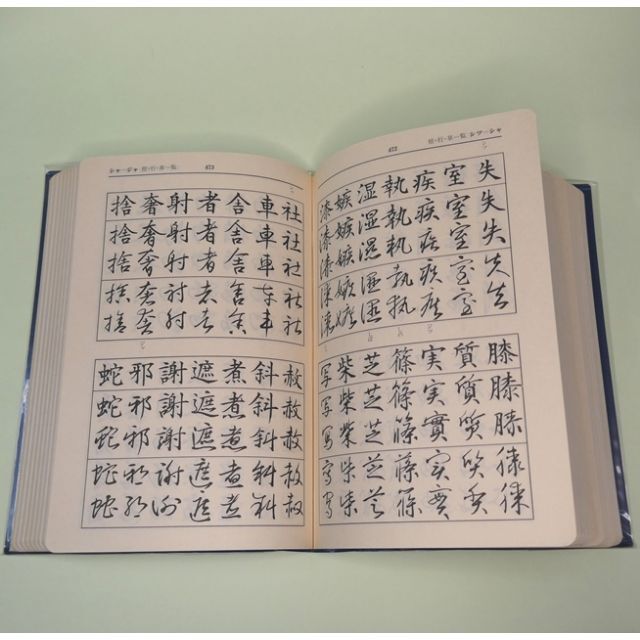 楷・行・草一覧 シツ―シャ
672
失失失失失
室室室室室
疾疾疾疾疾
執執執執執
湿湿湿湿湿
嫉嫉嫉嫉嫉
漆漆漆漆漆
膝膝膝膝膝
質質質質質
実実實実実
篠篠篠篠篠
芝芝芝芝芝
柴柴柴柴柴
写写寫写写
シャ―ジャ 楷・行・草一覧
673
社社社社社
車車車車車
舎舎舎舎舎
者者者者者
射射射射射
奢奢奢奢奢
捨捨捨捨捨
赦赦赦赦赦
斜斜斜斜斜
煮煮煮煮煮
遮遮遮遮遮
謝謝謝謝謝
邪邪邪邪邪
蛇蛇蛇蛇蛇